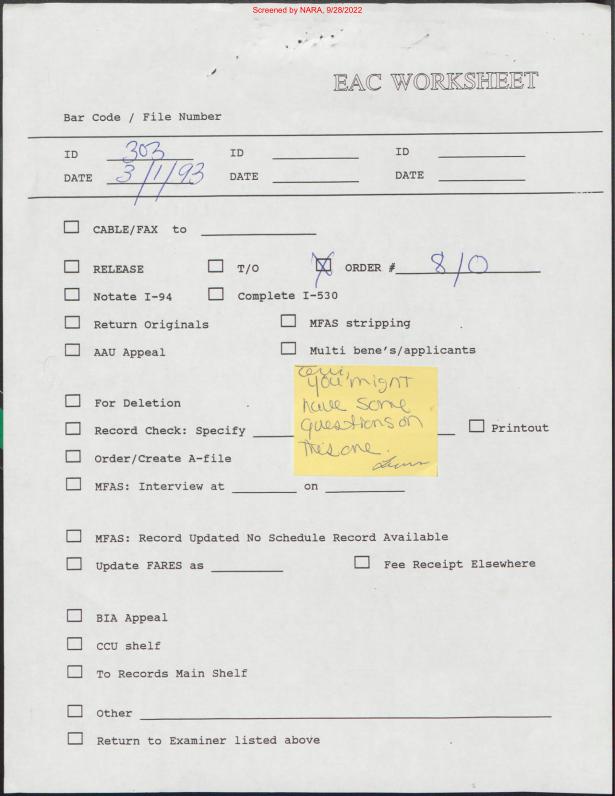 Screened by NARA, 9/28/2022
EAC WORKSHEET
Bar Code / File Number
ID 303 ID ID
DATE 3/1/93 DATE DATE
CABLE/FAX to
RELEASE T/O X ORDER # 810
Notate I-94 Complete I-530
Return Originals MFAS stripping
AAU Appeal Multi bene's/applicants
you might
have some
questions on
this one.
For Deletion
Record Check: Specify Printout
Order/Create A-file
MFAS: Interview at on
MFAS: Record Updated No Schedule Record Available
Update FARES as Fee Receipt Elsewhere
BIA Appeal
CCU shelf
To Records Main Shelf
Other
Return to Examiner listed above